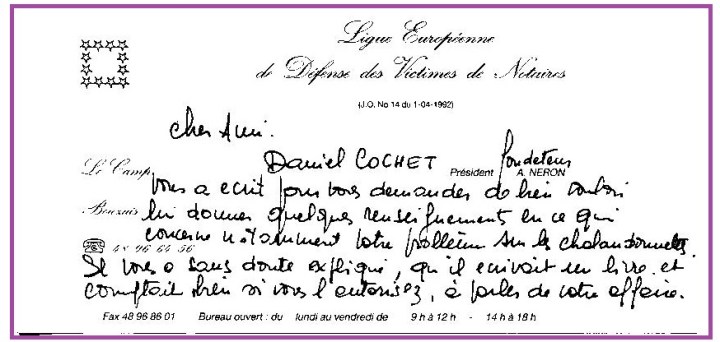 Ligue Européenne
de Défense des Victimes de Notaires
(J.O. No 14 du 1-04-1992)
cher Ami.
Daniel COCHET
fondateur
Le Camp
Président A. NERON
vous a ecrit pour vous demander de bien vouloir
lui donner quelques renseignements en ce qui
concerne notamment votre problème sur les
48 96 64 56
Il vous a sans doute expliqué, qu'il ecrivait un livre et
comptait bien si vous l'autorisez, à parler de votre affaire.
Fax 48 96 86 01 Bureau ouvert : du lundi au vendredi de 9 h à 12 h - 14 h à 18 h